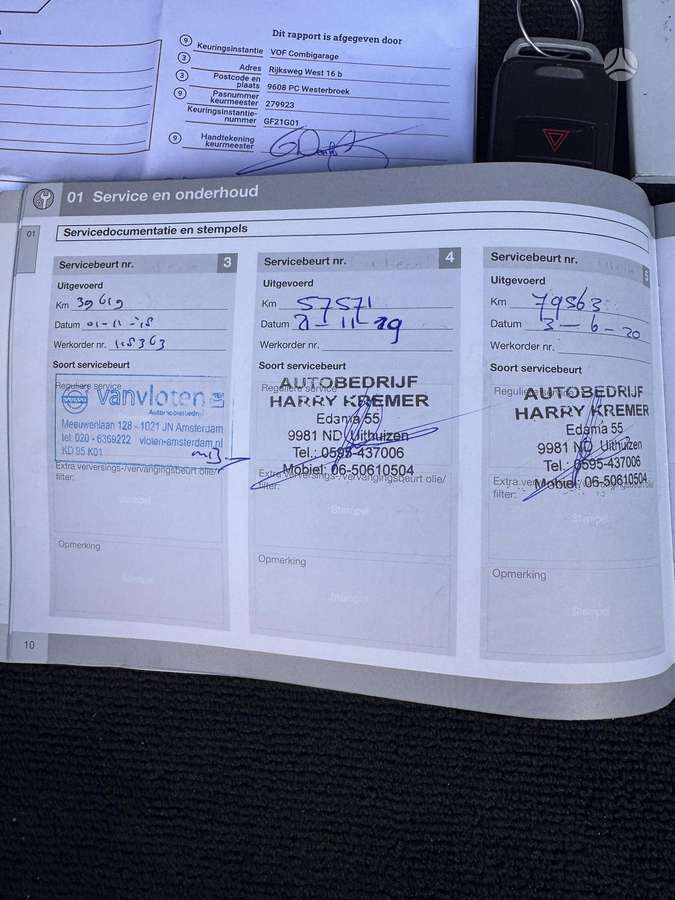 Dit rapport is afgegeven door
9 Keuringsinstantie VOF Combigarage
3 Adres Rijksweg West 16 b
3 Postcode en plaats 9608 PC Westerbroek
9 Pasnummer keurmeester 279923
Keuringsinstantie-nummer GF21G01
9 Handtekening keurmeester
01 Service en onderhoud
01
Servicedocumentatie en stempels
Servicebeurt nr. 3
Uitgevoerd
Km 39619
Datum 01-11-18
Werkorder nr. 118363
Soort servicebeurt
Reguliere service
VOLVO vanvloten
Automobielbedrijf
Meeuwenlaan 128 - 1021 JN Amsterdam
tel: 020 - 6369222 vloten-amsterdam.nl
KD 95 K01
Extra verversings-/vervangingsbeurt olie/
filter:
Stempel
Opmerking
Stempel
Servicebeurt nr. 4
Uitgevoerd
Km 57571
Datum 21-11-19
Werkorder nr.
Soort servicebeurt
Reguliere service
AUTOBEDRIJF
HARRY KREMER
Edama 55
9981 ND Uithuizen
Tel.: 0595-437006
Mobiel: 06-50610504
Extra verversings-/vervangingsbeurt olie/
filter:
Stempel
Opmerking
Stempel
Servicebeurt nr. 5
Uitgevoerd
Km 79563
Datum 3-6-20
Werkorder nr.
Soort servicebeurt
Reguliere service
AUTOBEDRIJF
HARRY KREMER
Edama 55
9981 ND Uithuizen
Tel.: 0595-437006
Mobiel: 06-50610504
Extra verversings-/vervangingsbeurt olie/
filter:
Stempel
Opmerking
Stempel
10